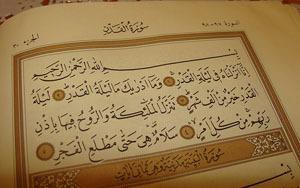 سُورَةُ الْقَدْرِ
بِسْمِ اللَّهِ الرَّحْمَٰنِ الرَّحِيمِ
إِنَّا أَنْزَلْنَاهُ فِي لَيْلَةِ الْقَدْرِ ۝ وَمَا أَدْرَاكَ مَا لَيْلَةُ الْقَدْرِ ۝ لَيْلَةُ
الْقَدْرِ خَيْرٌ مِنْ أَلْفِ شَهْرٍ ۝ تَنَزَّلُ الْمَلَائِكَةُ وَالرُّوحُ فِيهَا بِإِذْنِ
رَبِّهِمْ مِنْ كُلِّ أَمْرٍ ۝ سَلَامٌ هِيَ حَتَّىٰ مَطْلَعِ الْفَجْرِ ۝